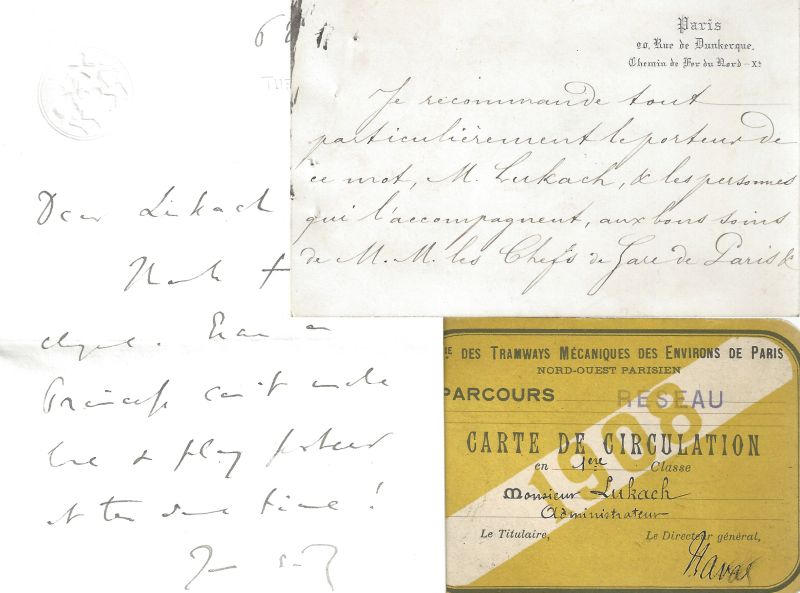 Dear Lukach
Princess can't make
love & play
at the same time!
Paris
20, Rue de Dunkerque.
Chemin de Fer du Nord – Xt
Je recommande tout
particulièrement le porteur de
ce mot, M. Lukach, & les personnes
qui l'accompagnent, aux bons soins
de M.M. les Chefs de Gare de Paris &
DES TRAMWAYS MÉCANIQUES DES ENVIRONS DE PARIS
NORD-OUEST PARISIEN
PARCOURS RESEAU
1908
CARTE DE CIRCULATION
en 1ère Classe
Monsieur Lukach
Administrateur
Le Titulaire, Le Directeur général,